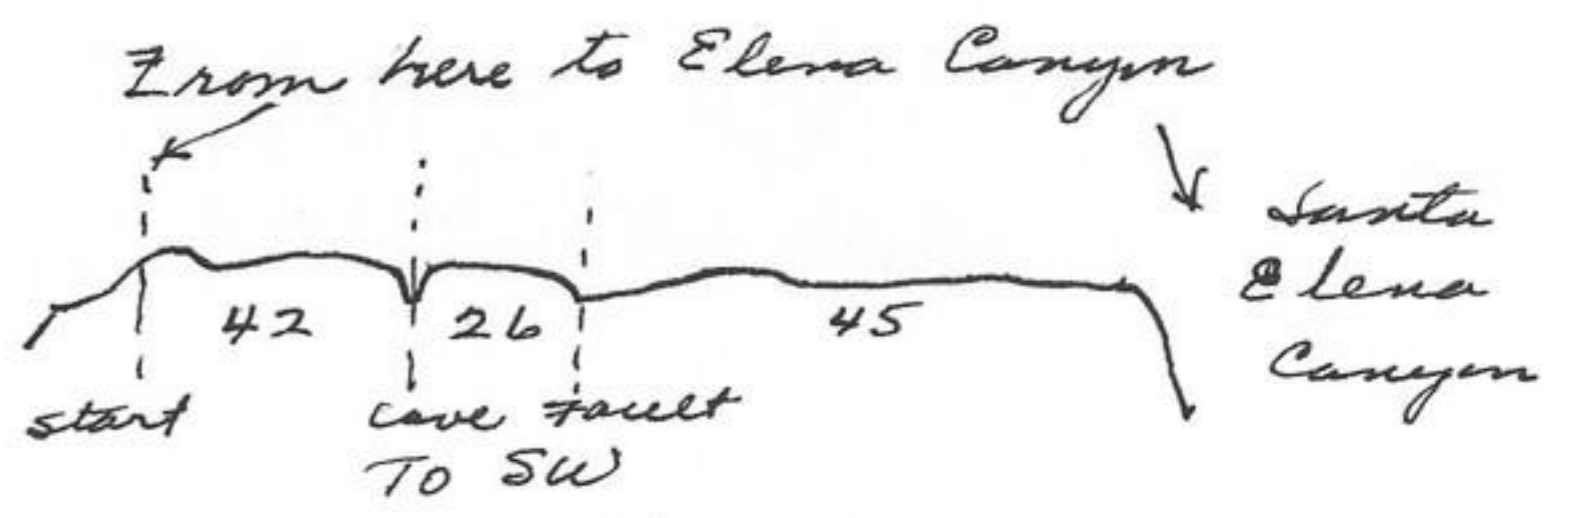 From here to Elena Canyon
Santa
Elena
Canyon
42 26 45
start cave Fault
TO SW